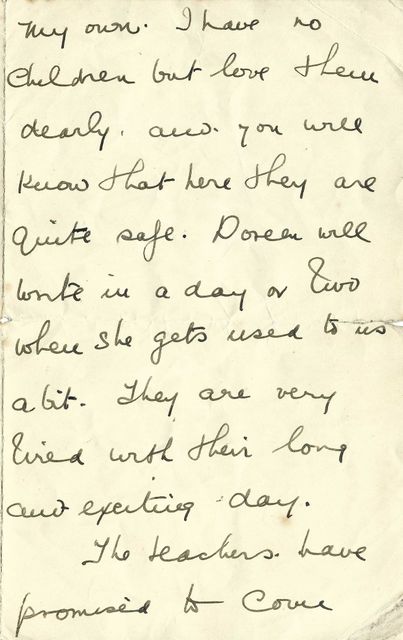 my own. I have no
children but love them
dearly. and. you will
know that here they are
quite safe. Doreen will
write in a day or two
when she gets used to us
a bit. They are very
tired with their long
and exciting day.
The teachers. have
promised to come